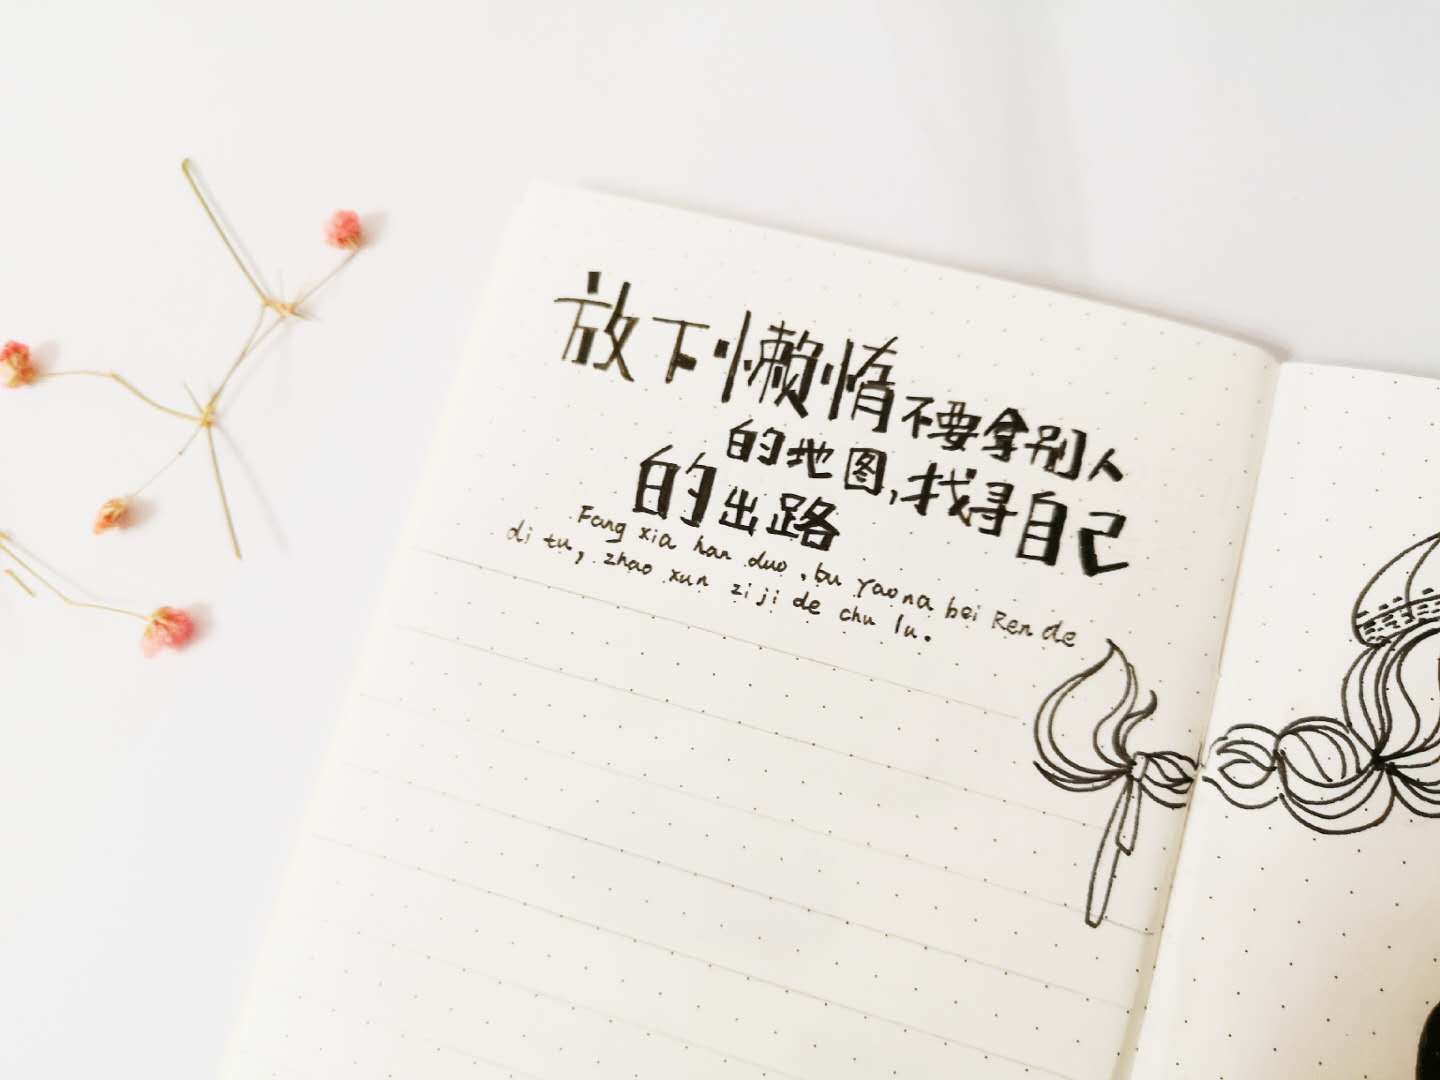 放下懒惰不要拿别人
的地图,找寻自己
的出路
Fang xia han duo,bu yaona bei Ren de
di tu, zhao xun zi ji de chu lu.